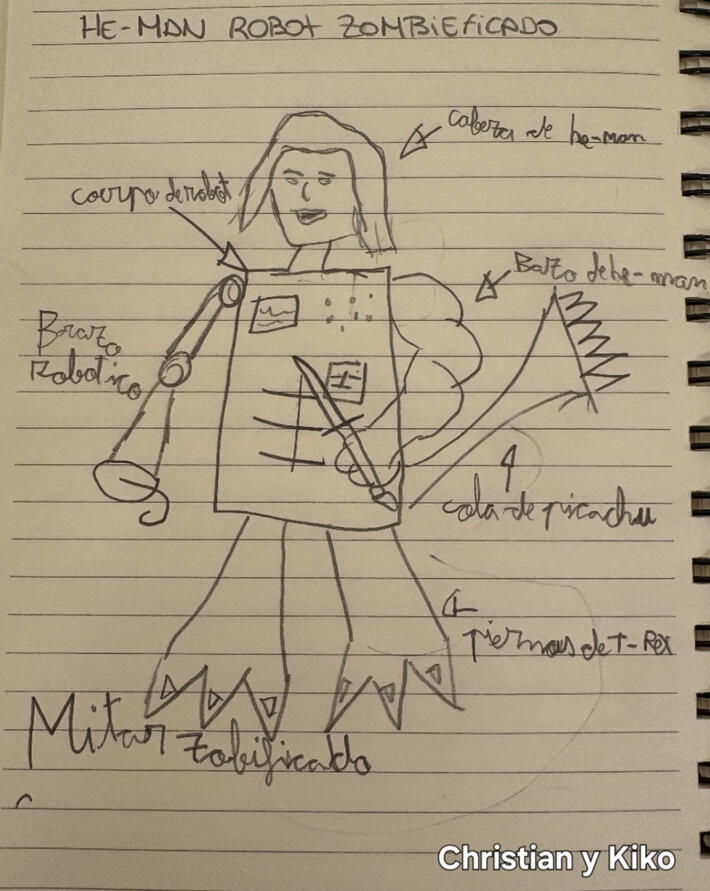 HE-MAN ROBOT ZOMBIEFICADO
cabeza de he-man
courpo de robot
Bazo de he-man
Brazo
Robotico
cola de picachu
Piernas de T-Rex
Mitar zobificado
Christian y Kiko